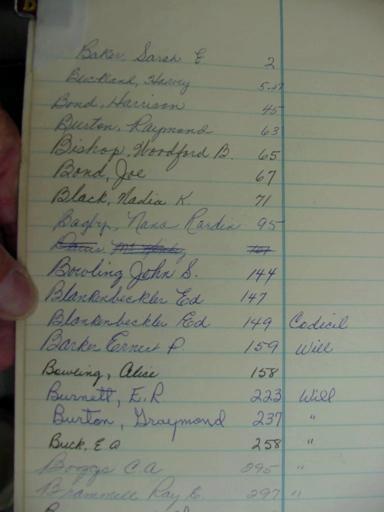 Baker, Sarah E 2
Buckland, Harvey
Bond, Harrison 45
Burton, Raymond 63
Bishop, Woodford B. 65
Bond, Joe 67
Black, Nadia K. 71
Bagby, Nana Rardin 95
Bowling John S. 144
Blankenbeckler Ed 147
Blankenbeckler Ed 149 Codicil
Barker Ernest P 159 Will
Bowling, Alice 158
Burnett, E.R 223 Will
Burton, Graymond 237 "
Buck, E A 258 "
Boggs C A 295 "
Brammell Ray E. 297 "